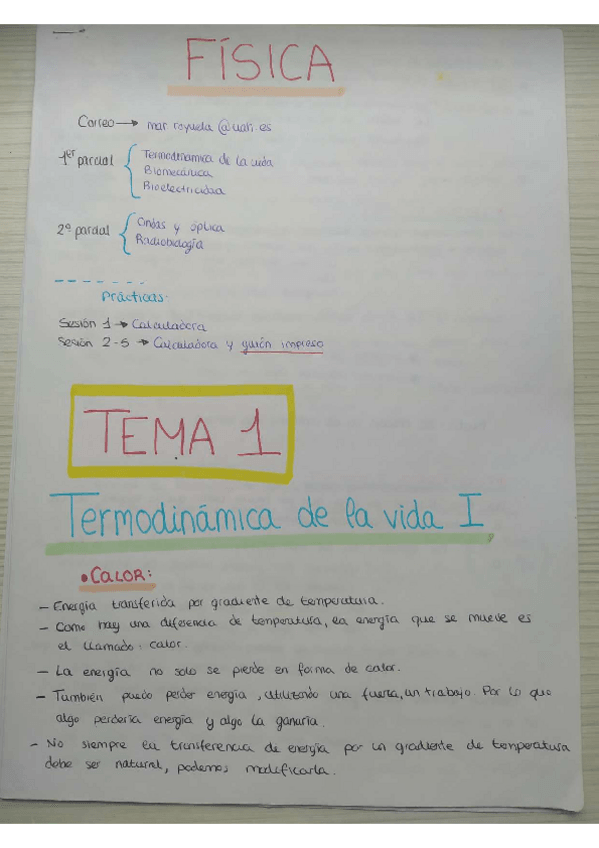 FÍSICA
Correo → mar reyuela @uah.es
1er parcial { Termodinámica de la vida
Biomecánica
Bioelectricidad
2º parcial { Ondas y óptica
Radiobiología
Prácticas:
Sesión 1 → Calculadora
Sesión 2-5 → Calculadora y guión impreso
TEMA 1
Termodinámica de la vida I
• CALOR:
- Energía transferida por gradiente de temperatura.
- Como hay una diferencia de temperatura, la energía que se mueve es
el llamado: calor.
- La energía no solo se pierde en forma de calor.
- También puedo perder energía, utilizando una fuerza, un trabajo. Por lo que
algo perdería energía y algo la ganaría.
- No siempre la transferencia de energía por un gradiente de temperatura
debe ser natural, podemos modificarla.